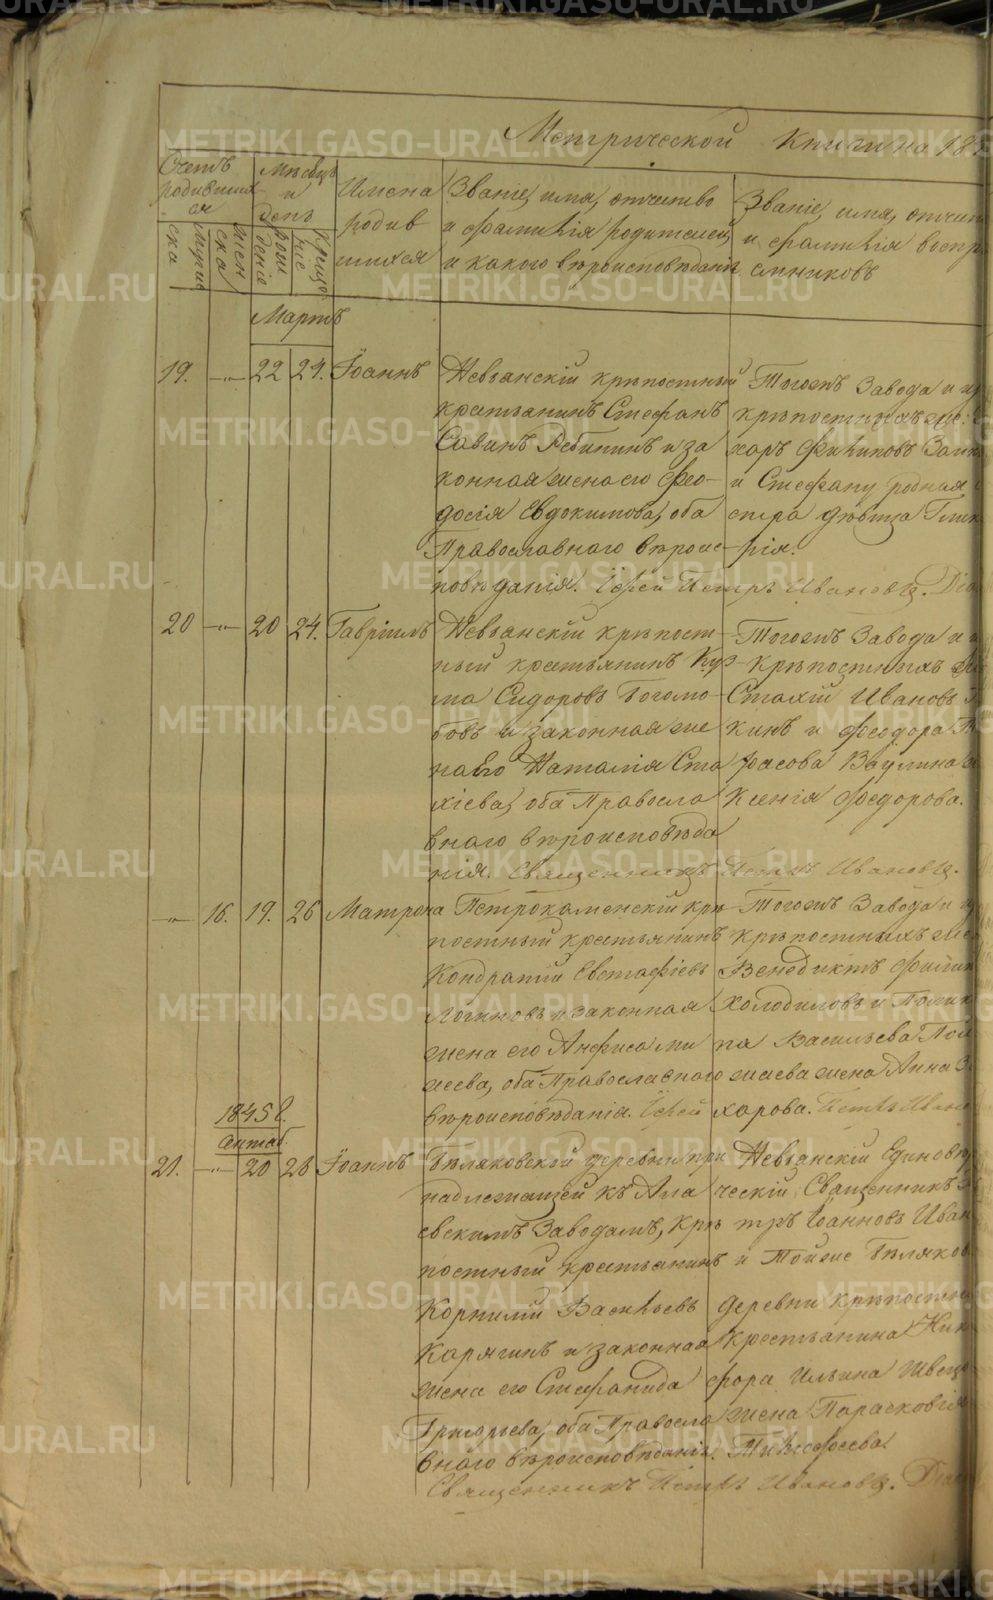 Метрической Книги на 18
Счетъ родившихся
Мѣсяцъ и день
Имена родившихся
Званіе, имя, отчество и фамилія родителей, и какого вѣроисповѣданія
Званіе, имя, отчест и фамилія воспріемниковъ
Мужеска
Женска
Рожденіе
Креще
Мартъ
19. —„— 22 24. Іоаннъ
Невьянскій крѣпостный
крестьянинъ Стефанъ
Савинъ Рябининъ и за
конная жена его Ѳео-
досія Евдокимова, оба
Православнаго вѣроис-
повѣданія. Іерей Петръ Ивановъ. Діа
Тогожъ Завода и
крѣпостныхъ
харъ Филиповъ
и Стефану родная
сестра дѣвица Глик
рія.
20 —„— 20 24. Гавріилъ
Невьянскій крѣпост-
ный крестьянинъ Куз-
ма Сидоровъ Богомо-
ловъ и законная же
на его Наталія Ста
хіева, оба Правосла
внаго вѣроисповѣда
нія. Священникъ Петръ Ивановъ.
Тогожъ Завода и
крѣпостныхъ
Стахій Ивановъ
кинъ и Ѳеодора
расова Ваулина
Ксенія Ѳедорова.
—„— 16. 19. 26 Матрона
Петрокаменскій крѣ
постный крестьянинъ
Кондратій Евстафіевъ
Логиновъ и законная
жена его Анфиса ми
сеева, оба Православнаго
вѣроисповѣданія. Іерей Петръ Иван
Тогожъ Завода и
крѣпостныхъ
Венедиктъ Филип
Холодиловъ и
на Васильева
жена Анна З
харова.
1845 г.
21. —„— 20 26 Іоаннъ
Бѣляковской деревни при
надлежащей къ Ала
евскимъ Заводамъ, крѣ
постный крестьянинъ
Корнилій Васильевъ
Карягинъ и законная
жена его Стефанида
Григорьева, оба Правосла
внаго вѣроисповѣданія.
Священникъ Петръ Ивановъ. Діа
Невьянскій Единовѣр
ческій Священникъ
тръ Іоанновъ Иван
и Тойже Бѣляков
деревни крѣпостна
крестьянина Ники
фора Ильина
жена Парасковія
Тимофеева.
METRIKI.GASO-URAL.RU